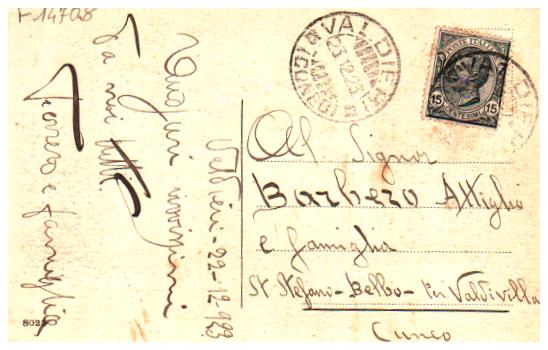 F 14708
Auguri vivissimi
a voi tutti
e famiglia
Valdieri - 22-12-923
8023
VALDIERI
23.12.23
POSTE ITALIANE
15 15
CENTESIMI
VALDIERI
All Signor
Barbero Attiglio
e famiglia
St Stefano - Belbo - per Valdivilla
Cuneo